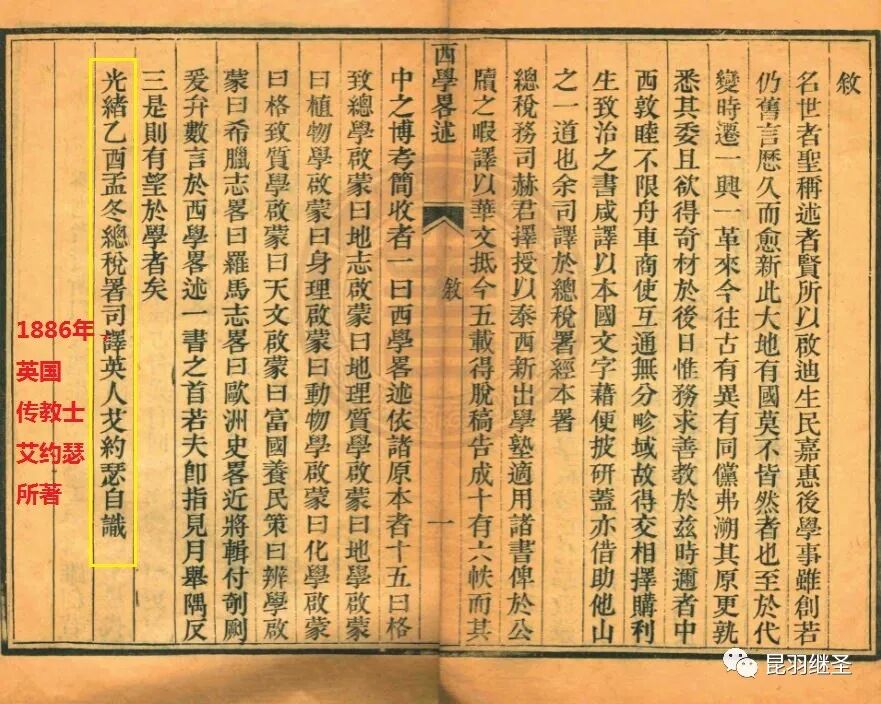 敘
名世者聖稱述者賢所以啟迪生民嘉惠後學事雖創若
仍舊言歷久而愈新此大地有國莫不皆然者也至於代
變時遷一興一革來今往古有異有同儻弗溯其原更孰
悉其委且欲得奇材於後日惟務求善教於茲時邇者中
西敦睦不限舟車商使互通無分畛域故得交相擇購利
生致治之書咸譯以本國文字藉便披研蓋亦借助他山
之一道也余司譯於總稅署經本署
總稅務司赫君擇授以泰西新出學塾適用諸書俾於公
牘之暇譯以華文抵今五載得脫稿告成十有六帙而其
西學畧述
敘
一
中之博考簡收者一曰西學畧述依諸原本者十五曰格
致總學啟蒙曰地志啟蒙曰地理質學啟蒙曰地學啟蒙
曰植物學啟蒙曰身理啟蒙曰動物學啟蒙曰化學啟蒙
曰格致質學啟蒙曰天文啟蒙曰富國養民策曰辨學啟
蒙曰希臘志畧曰羅馬志畧曰歐洲史畧近將輯付剞劂
爰弁數言於西學畧述一書之首若夫卽指見月舉隅反
三是則有望於學者矣
光緒乙酉孟冬總稅署司譯英人艾約瑟自識
1886年，
英国
传教士
艾约瑟
所著
昆羽继圣